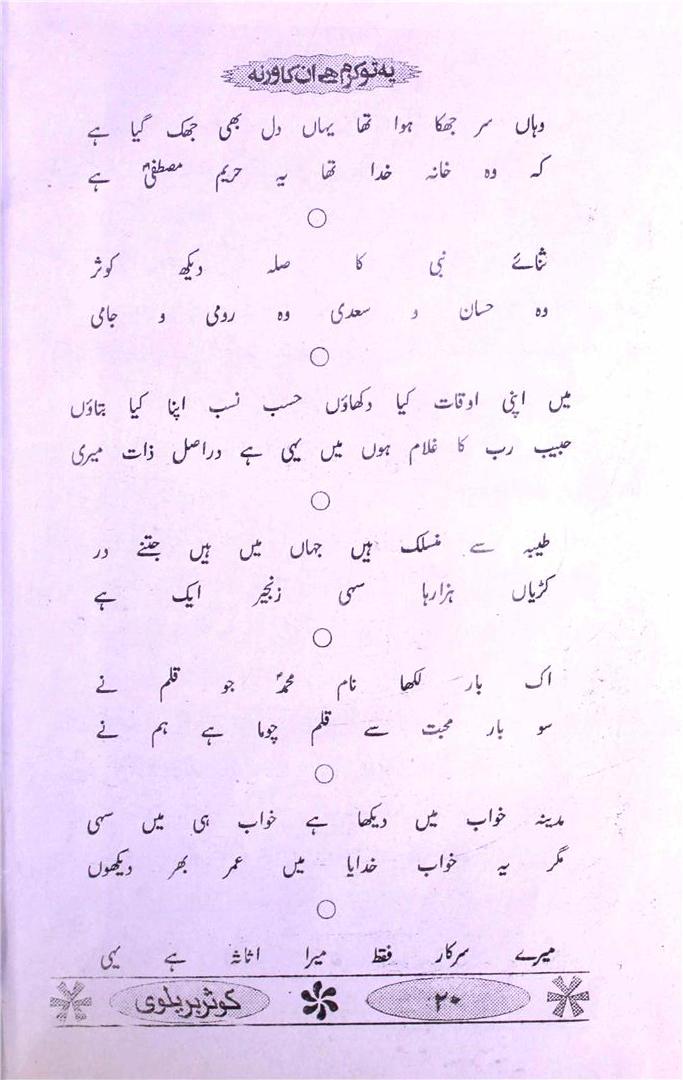 یہ تو کرم ہے ان کا ورنہ
وہاں سر جھکا ہوا تھا یہاں دل بھی جھک گیا ہے
کہ وہ خانہ خدا تھا یہ حریم مصطفیٰؐ ہے
ثنائے نبی کا صلہ دیکھ کوثر
وہ حسان و سعدی وہ رومی و جامی
میں اپنی اوقات کیا دکھاؤں حسب نسب اپنا کیا بتاؤں
حبیب رب کا غلام ہوں میں یہی ہے دراصل ذات میری
طیبہ سے منسلک ہیں جہاں میں ہیں جتنے در
کڑیاں ہزارہا سہی زنجیر ایک ہے
اک بار لکھا نام محمدؐ جو قلم نے
سو بار محبت سے قلم چوما ہے ہم نے
مدینہ خواب میں دیکھا ہے خواب ہی میں سہی
مگر یہ خواب خدایا میں عمر بھر دیکھوں
میرے سرکار فقط میرا اثاثہ ہے یہی
۲۰
کوثر بریلوی